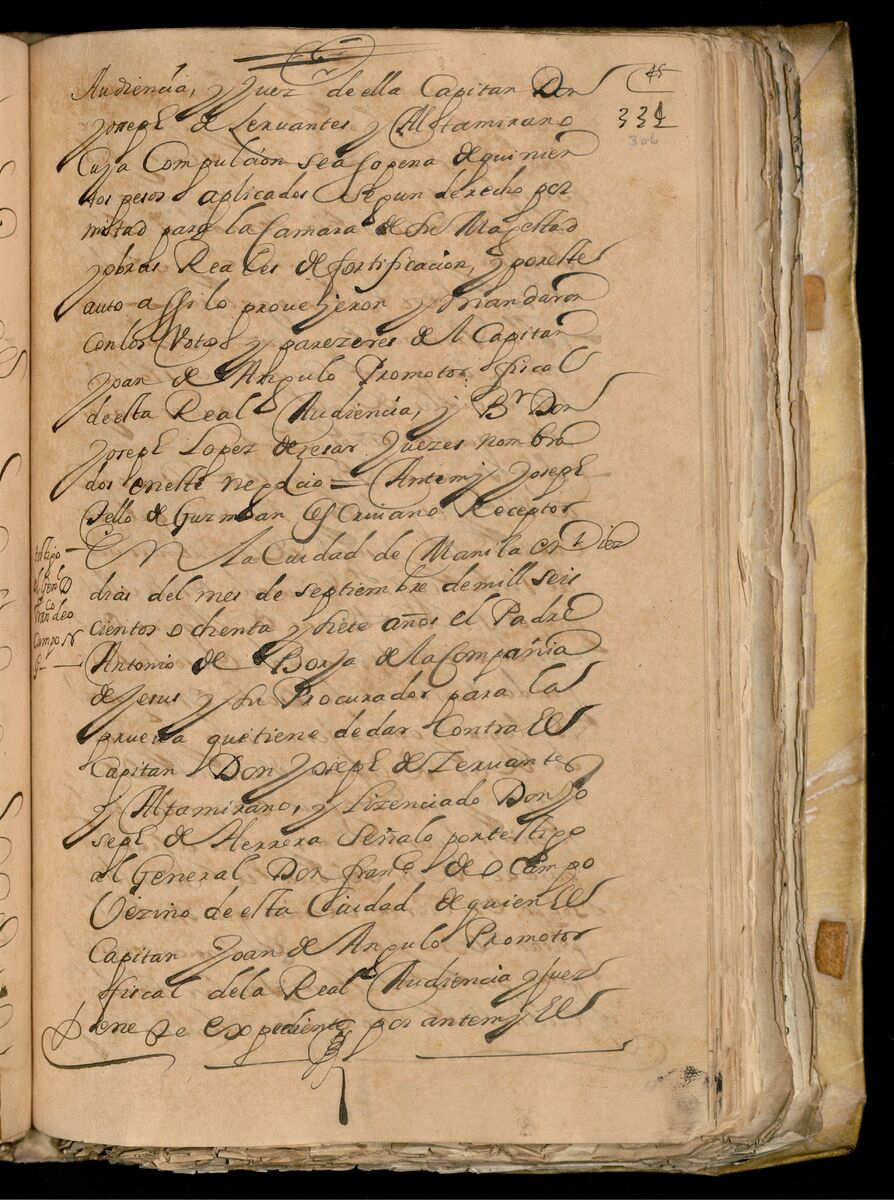 Audiencia, y Juez de ella Capitan Don
Joseph de Servantes y Altamirano
Cuya Compulcion sea sopena de quinien
tos pesos aplicados segun derecho por
mitad para la Camara de su Magestad
y obras Reales de fortificacion, y por este
auto assi lo proveyeron y mandaron
con los Votos y parezeres del Capitan
Joan de Angulo Promotor fiscal
de esta Real Audiencia, y Br Don
Joseph Lopez de resar Juezes nombra
dos en este negocio = Antemy Joseph
Tello de Guzman Escrivano Receptor
En la Ciudad de Manila en Diez
dias del mes de septiembre de mill seis
cientos ochenta y siete años el Padre
Antonio de Borja de la Compañia
de Jesus y su Procurador para la
prueva que tiene de dar Contra El
Capitan Don Joseph de Zervantes
y Altamirano, y Lizenciado Don Jo
seph de Herrera Señalo por testigo
al General Don franco de o Campo
Vezino de esta Ciudad de quien El
Capitan Joan de Angulo Promotor
fiscal de la Real Audiencia y Juez
de ne expediente por antemy El
45
331
306
testigo
el Genl D
Franco deo
Campo